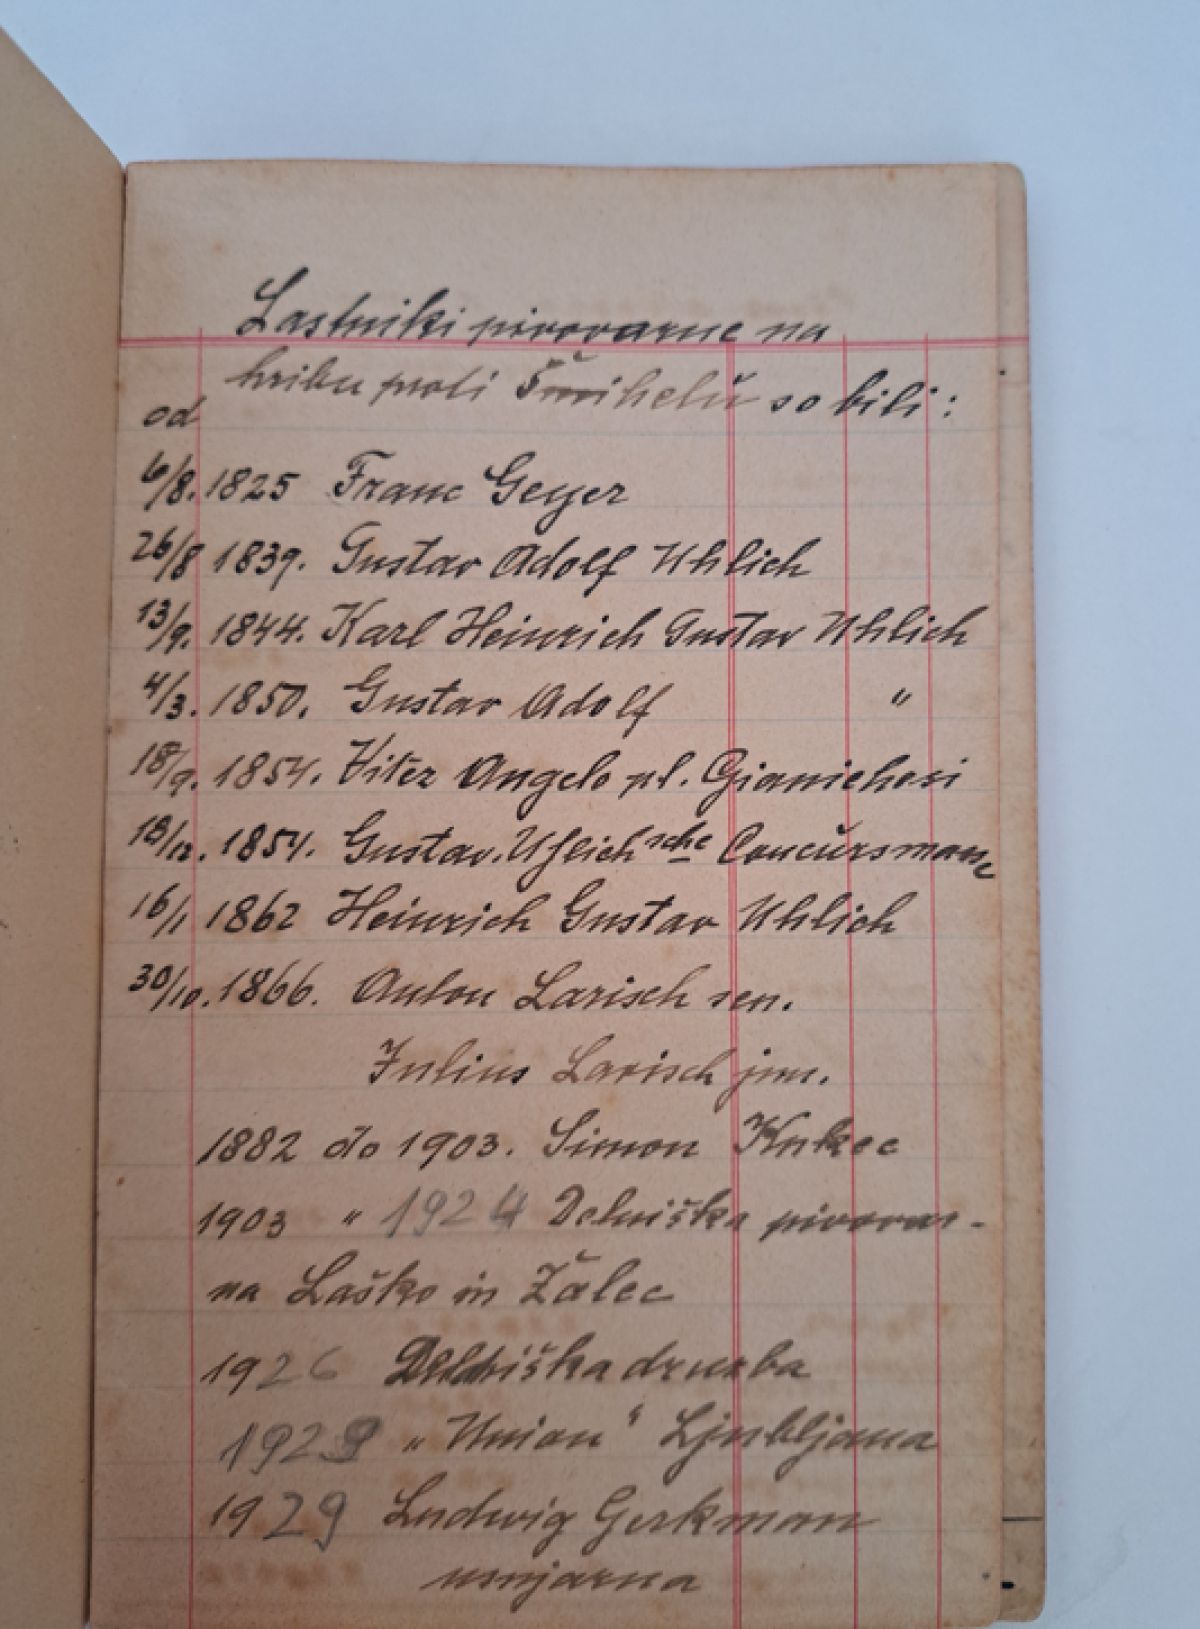 Lastniki pivovarne na
hribu proti Šmihelu so bili:
od
6/8. 1825 Franc Geyer
26/8 1839. Gustav Adolf Uhlich
13/9. 1844. Karl Heinrich Gustav Uhlich
4/3. 1850. Gustav Adolf "
18/9. 1854. Vitez Angelo pl.
18/12. 1854. Gustav Uhlich'sche Concursmasse
16/1 1862 Heinrich Gustav Uhlich
30/10. 1866. Anton Larisch sen.
Julius Larisch jun.
1882 do 1903. Simon Kukec
1903 " 1924 Delniška pivovar-
na Laško in Žalec
1926 Delniška družba
"Union" Ljubljana
1929 Ludwig Gerkman
usnjarna